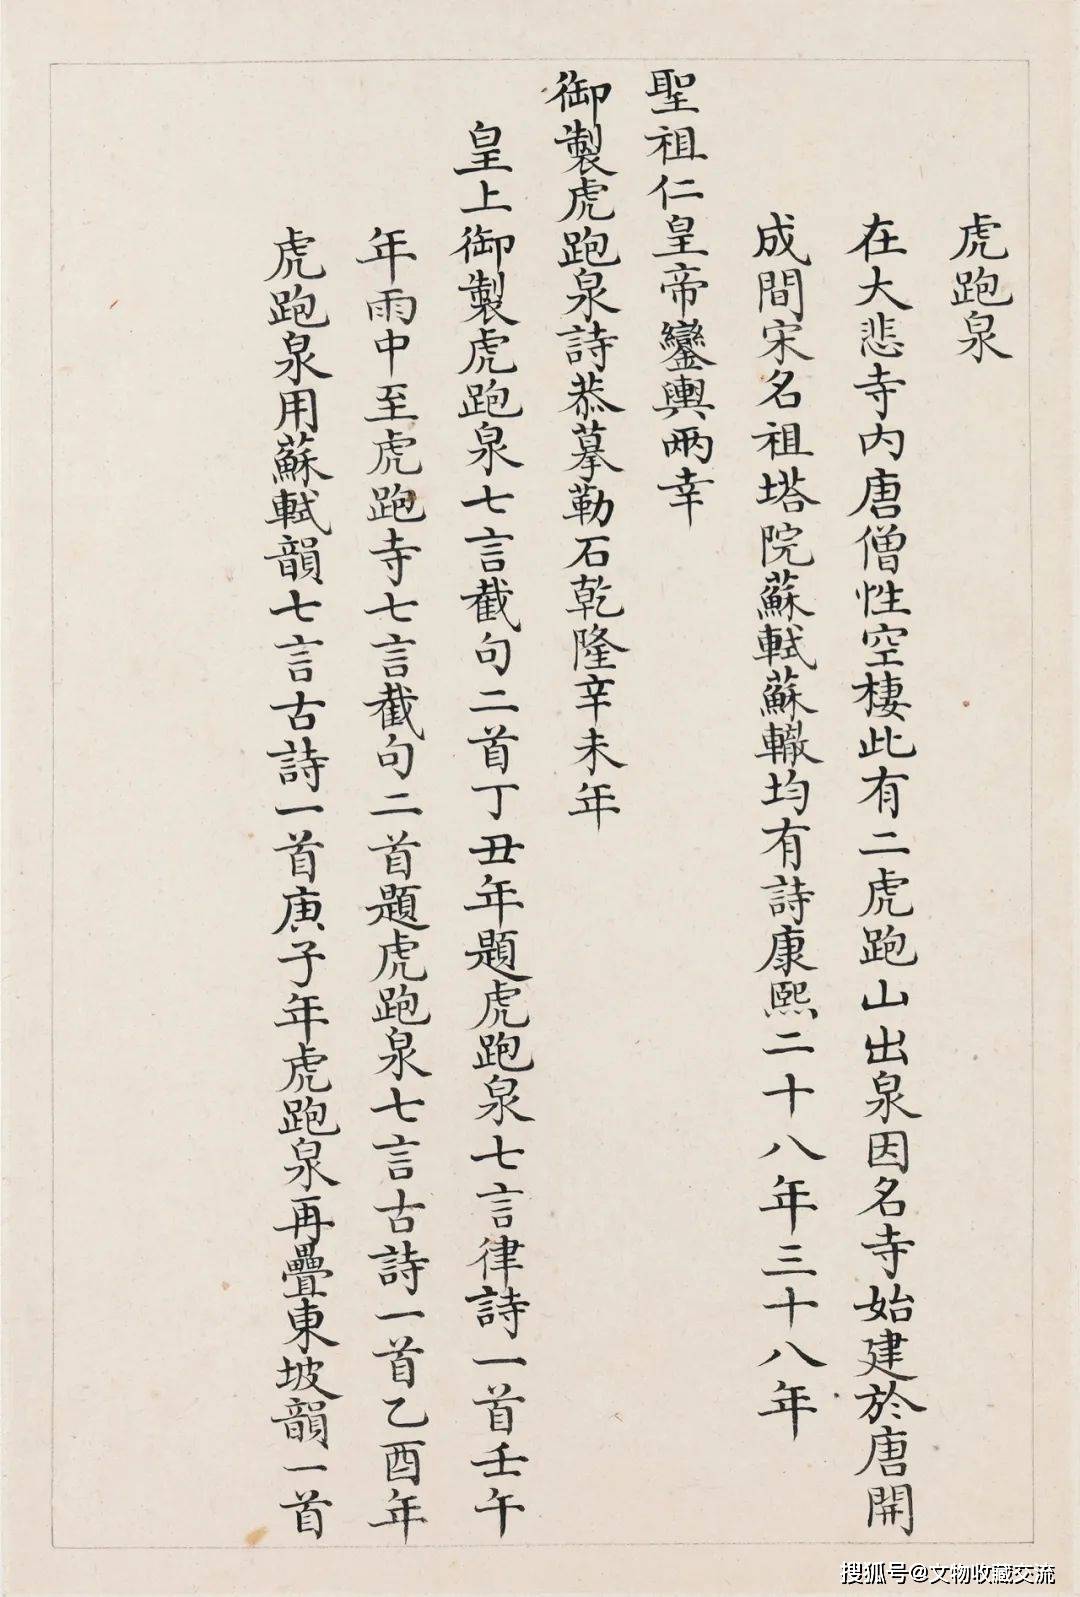 虎跑泉
在大悲寺内唐僧性空棲此有二虎跑山出泉因名寺始建於唐開
成間宋名祖塔院蘇軾蘇轍均有詩康熙二十八年三十八年
聖祖仁皇帝鑾輿兩幸
御製虎跑泉詩恭摹勒石乾隆辛未年
皇上御製虎跑泉七言截句二首丁丑年題虎跑泉七言律詩一首壬午
年雨中至虎跑寺七言截句二首題虎跑泉七言古詩一首乙酉年
虎跑泉用蘇軾韻七言古詩一首庚子年虎跑泉再疊東坡韻一首
搜狐号@文物收藏交流